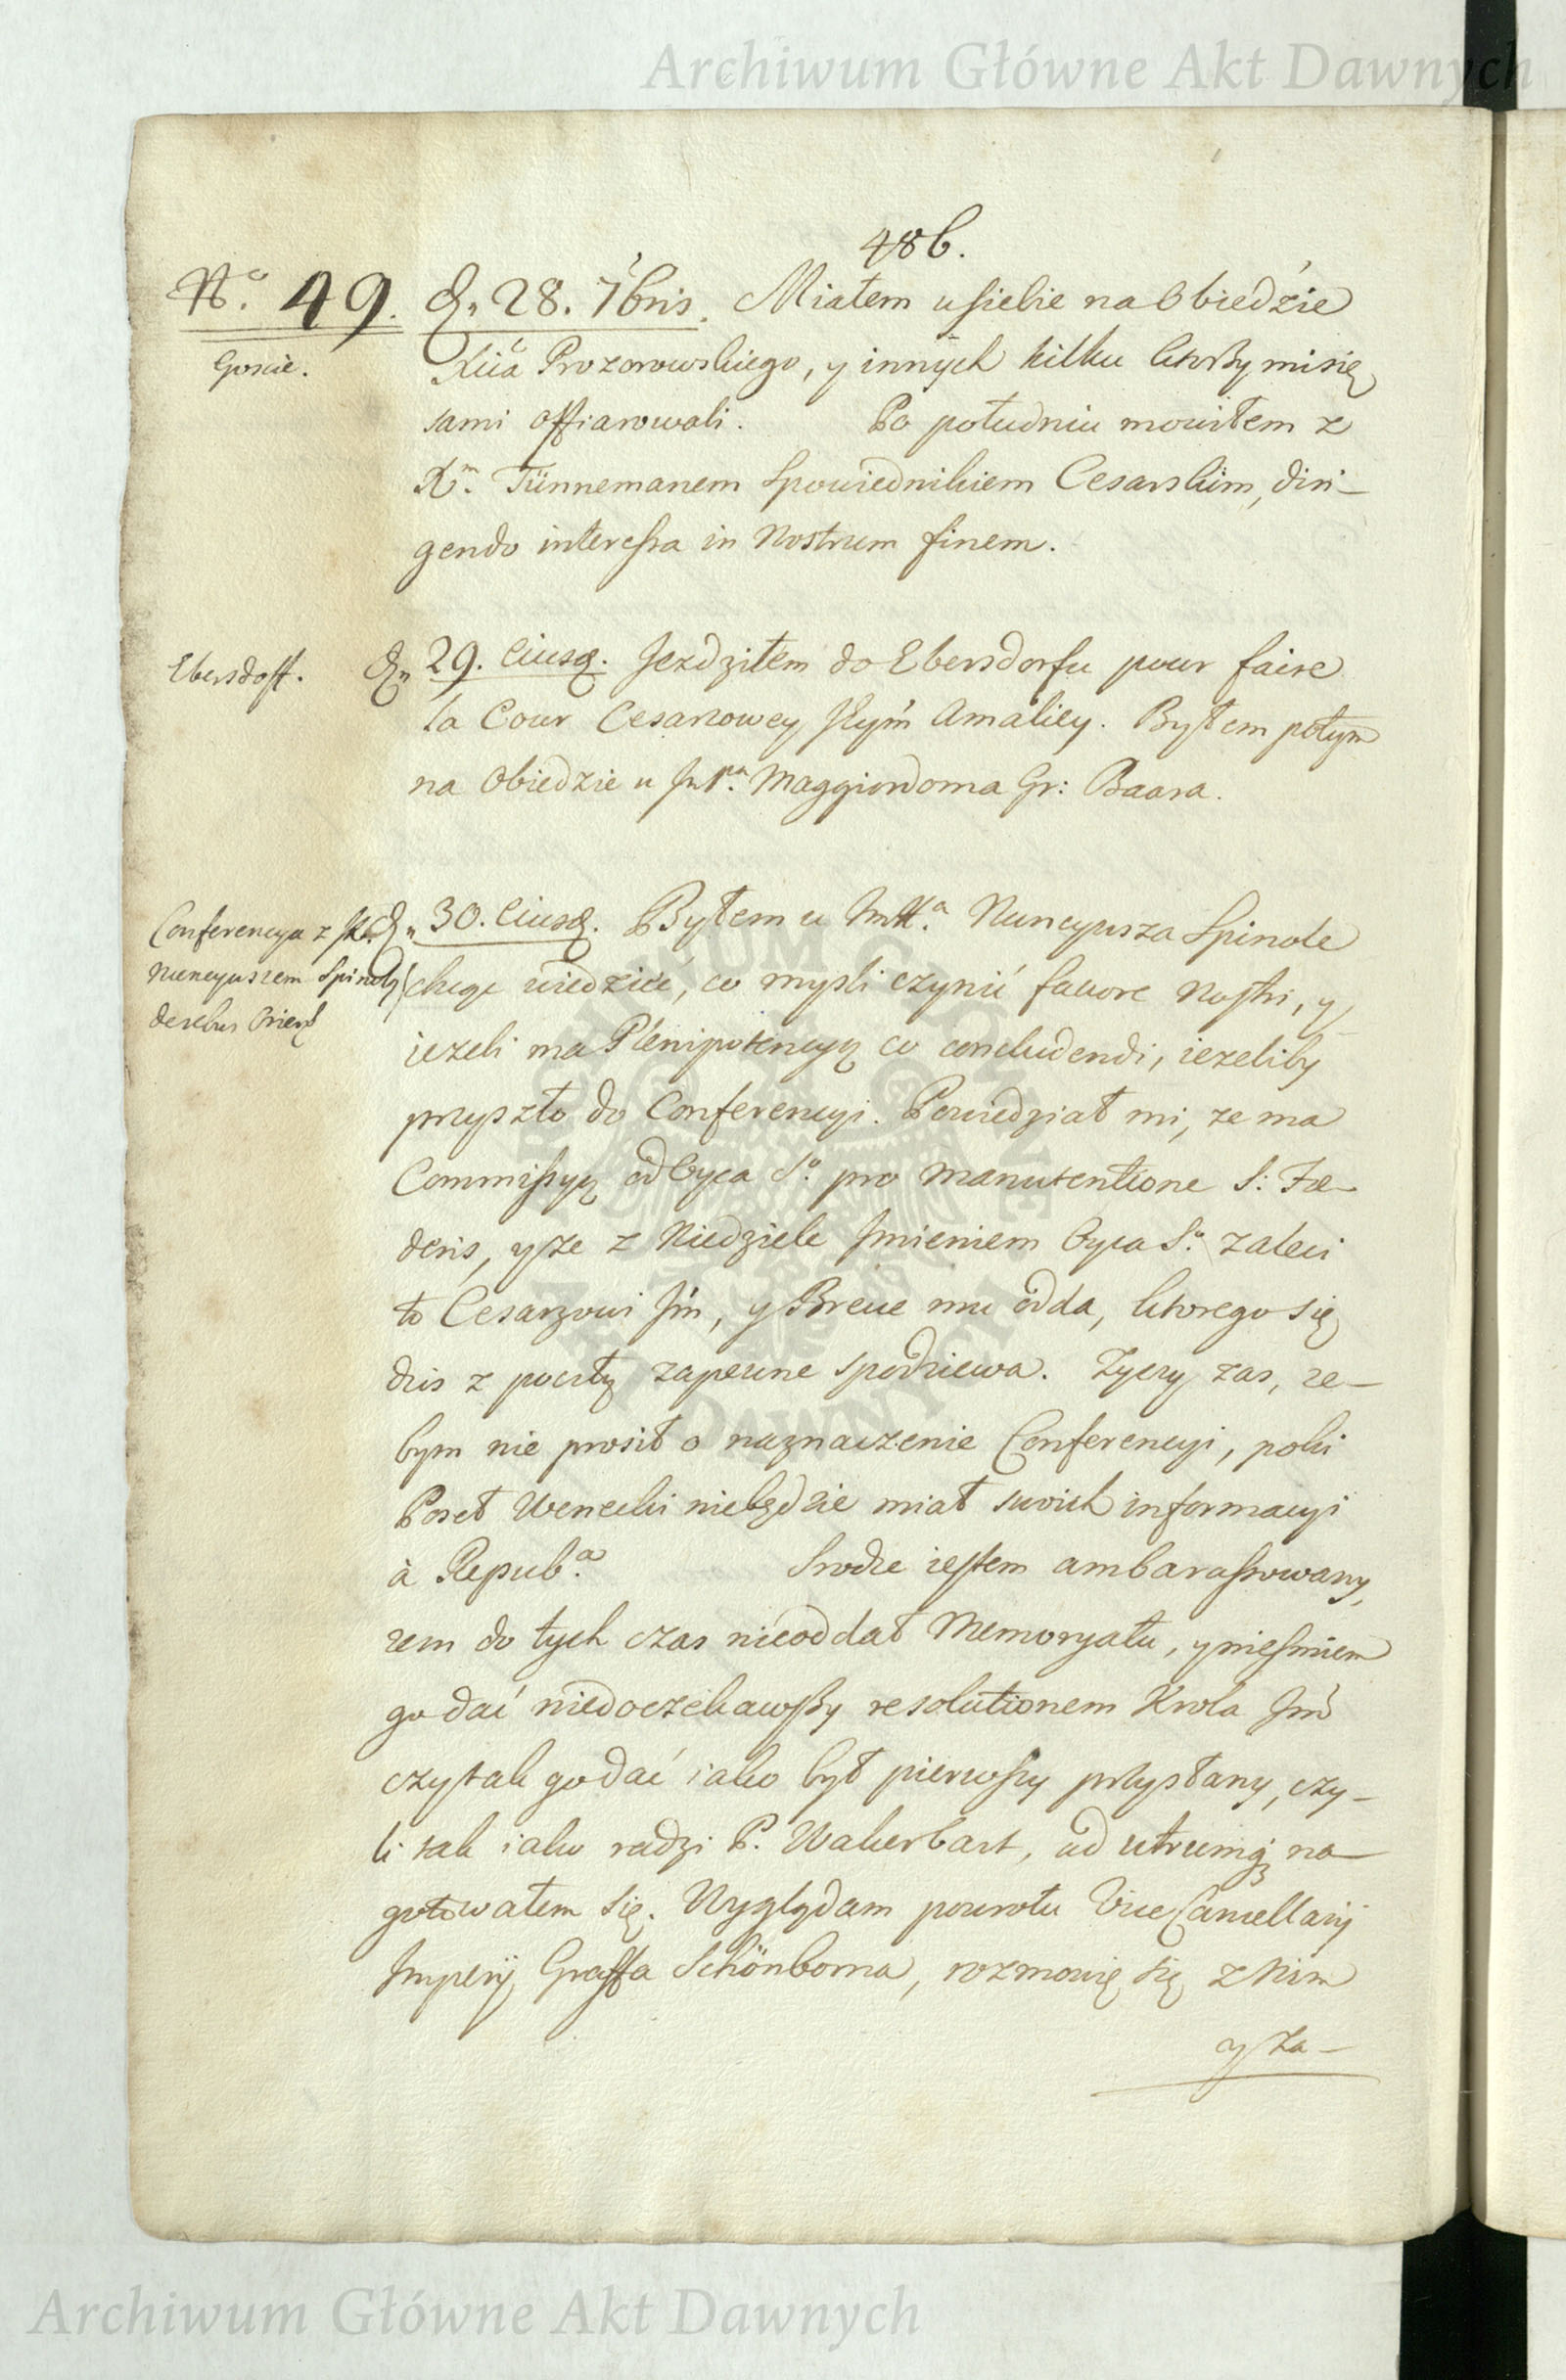 Archiwum Główne Akt Dawnych
486.
No. 49. D. 28. 7bris. Miałem u siebie na Obiedzie
Goscie.
Xcia Prozorowskiego, y innych kilku ktorzy mi się
sami offiarowali. Po południu mowiłem z
Xm. Tünnemanem Spowiednikiem Cesarskim, diri-
gendo interessa in Nostrum finem.
Ebersdoff.
Dn 29. Eiusq. Jezdziłem do Ebersdorfu pour faire
la Cour Cesarzowey Jeym Amaliey. Byłem potym
na Obiedzie u Maggiordoma Gr: Baara.
Conferencya z
Nuncyuszem Spinolą
de rebus Orient
Dn 30. Eiusq. Byłem u Nuncyusza Spinole
chcąc wiedzieć, co mysli czynić favore Nostri, y
iezeli ma Plenipotencyą co concludendi, iezeliby
przyszło do Conferencyi. Powiedział mi, ze ma
Commissyą od Oyca So. pro manutentione S: Fæ-
deris, y ze z Niedziele Jmieniem Oyca So. zaleci
to Cesarzowi Jm, y Breve mu odda, ktorego się
dzis z pocztą zapewne spodziewa. Zyczy zas, ze-
bym nie prosił o naznaczenie Conferencyi, poki
Poseł Wenecki niebędzie miał swoich informacyi
à Repuba. Srodze iestem ambarassowany,
zem do tych czas nieoddał Memoryału, y niesmiem
go dać niedoczekawszy resolutionem Krola Jm
czy tak go dać iako był pierwszy przysłany, czy-
li tak iako radzi P. Wakerbart, ad utrumq na-
gotowałem się. Wyglądam powrotu Vice Cancellarij
Imperij Graffa Schönborna, rozmowię się z Nim
y za-
Archiwum Główne Akt Dawnych